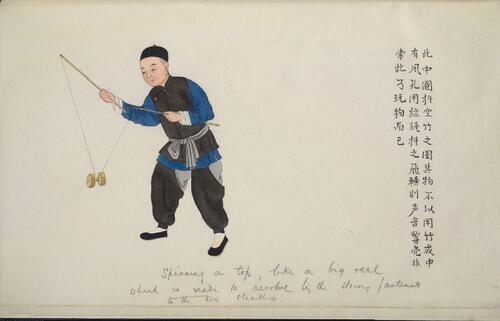 此中國抖空竹之圖其物不以用竹成中
有風孔用線繩抖之飛轉則声音響亮非
常此乃玩物而已
Spinning a top, like a big reel
which is made to revolve by the string fastened
to the two sticks